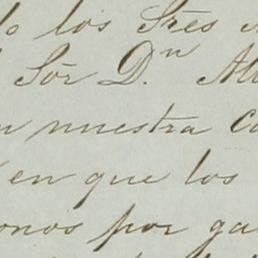 lo los Sres
Sor D.n Al
n nuestra Co
en que los
onos por ga